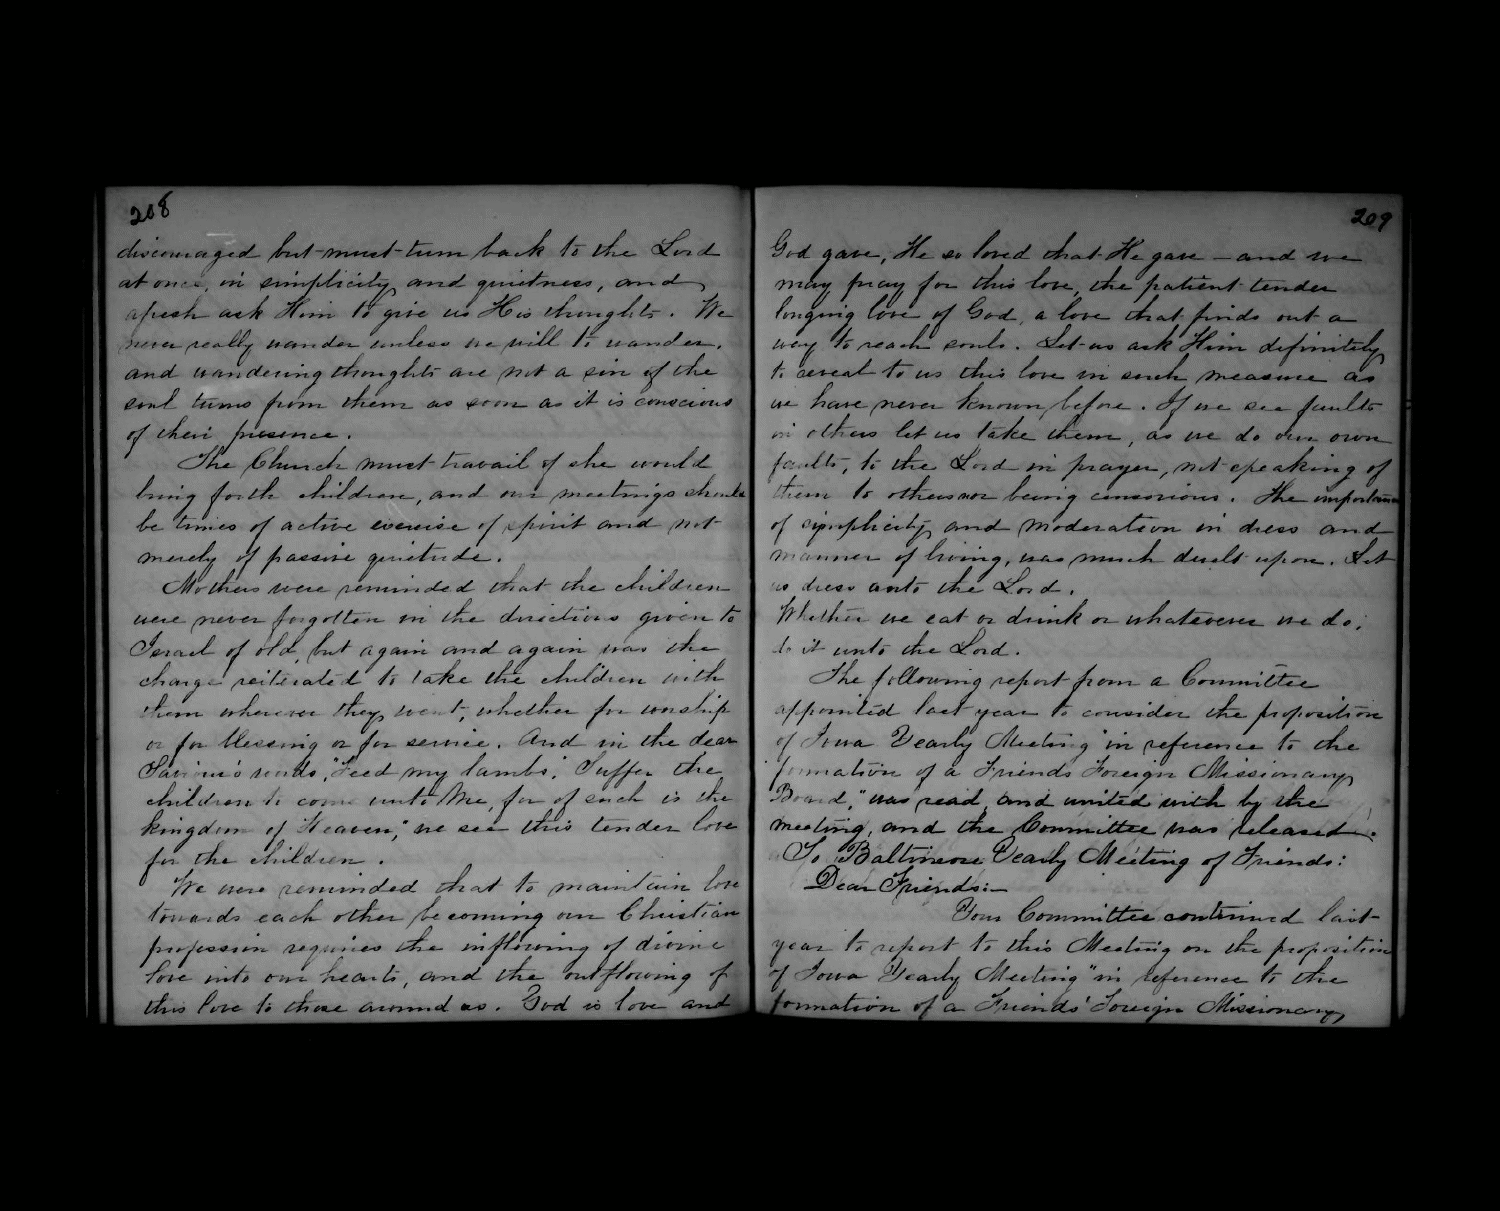 208
discouraged but must turn back to the Lord
at once, in simplicity and quietness, and
afresh ask Him to give us His thoughts. We
never really wander unless we will to wander,
and wandering thoughts are not a sin if the
soul turns from them as soon as it is conscious
of their presence.
The Church must travail if she would
bring forth children, and our meetings should
be times of active exercise of spirit and not
merely of passive quietude.
Mothers were reminded that the children
were never forgotten in the directions given to
Israel of old, but again and again was the
charge reiterated to take the children with
them wherever they went, whether for worship
or for blessing or for service. And in the dear
Saviour's words, "Feed my lambs", "Suffer the
children to come unto Me, for of such is the
kingdom of Heaven," we see this tender love
for the children.
We were reminded that to maintain love
towards each other becoming our Christian
profession requires the inflowing of divine
love into our hearts, and the outflowing of
this love to those around us. God is love and
209
God gave, He so loved that He gave – and we
may pray for this love, the patient tender
longing love of God, a love that finds out a
way to reach souls. Let us ask Him definitely
to reveal to us this love in such measure as
we have never known before. If we see faults
in others let us take them, as we do our own
faults, to the Lord in prayer, not speaking of
them to others nor being censorious. The importance
of simplicity and moderation in dress and
manner of living, was much dwelt upon. Let
us dress unto the Lord.
Whether we eat or drink or whatsoever we do,
do it unto the Lord.
The following report from a Committee
appointed last year to consider the proposition
of Iowa Yearly Meeting "in reference to the
formation of a Friends Foreign Missionary
Board," was read, and united with by the
meeting, and the Committee was released.
To Baltimore Yearly Meeting of Friends:
Dear Friends:—
Your Committee continued last
year to report to this Meeting on the proposition
of Iowa Yearly Meeting "in reference to the
formation of a Friends' Foreign Missionary